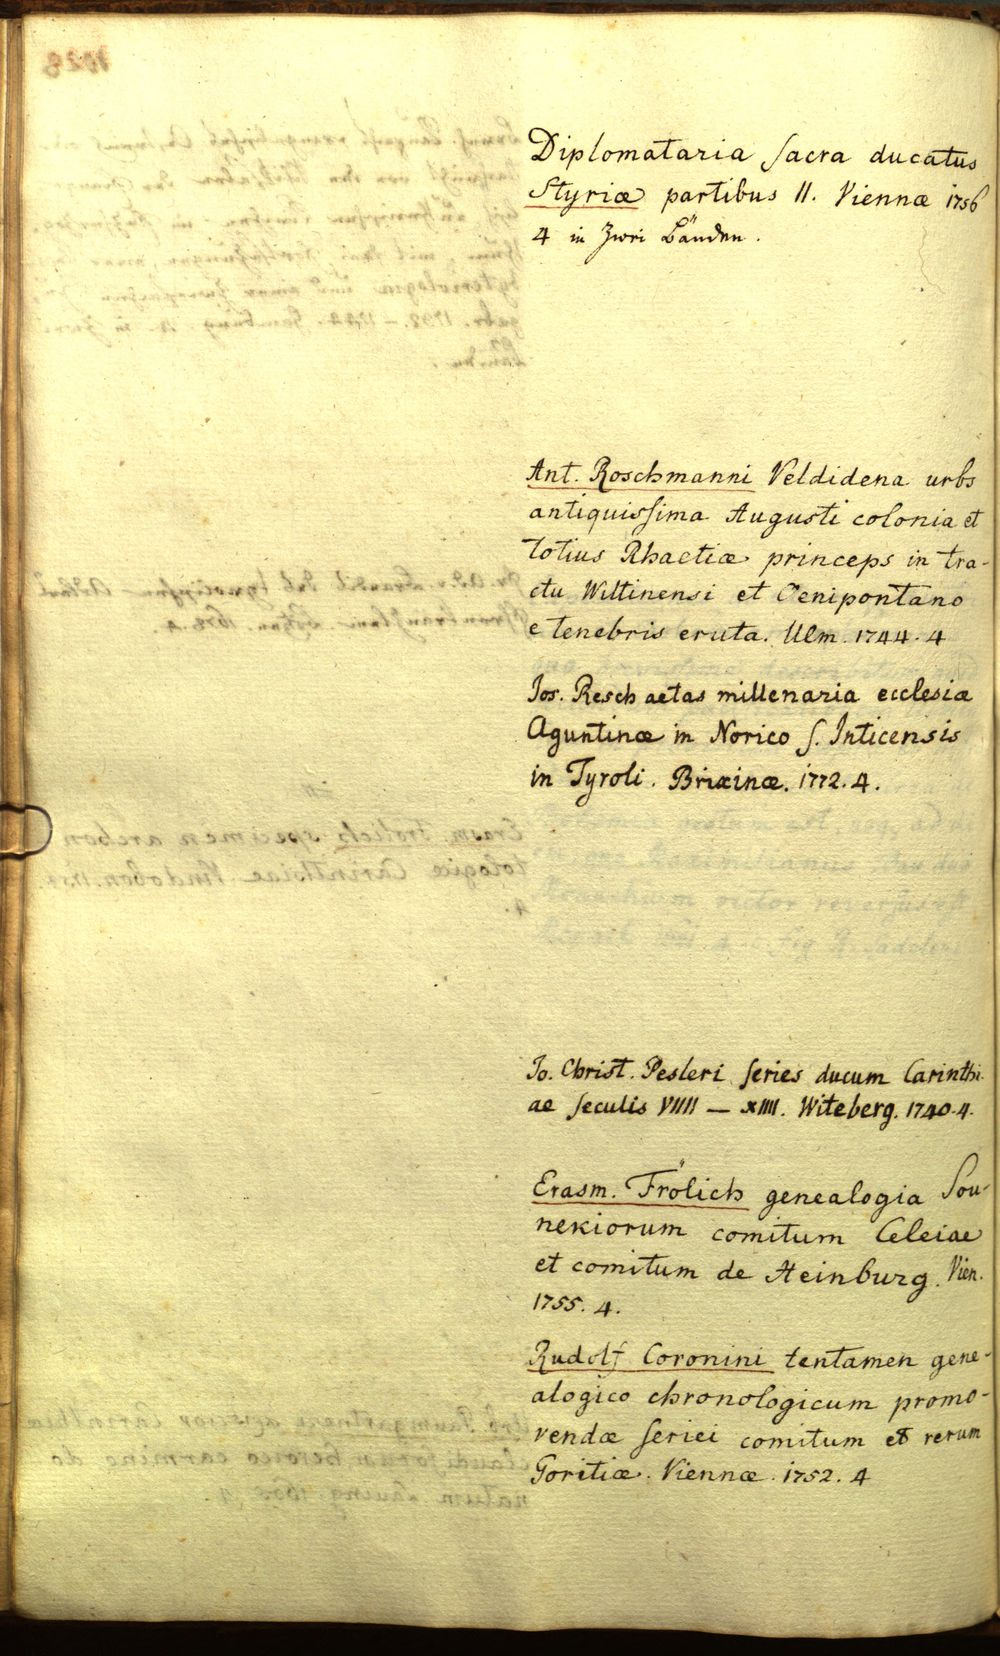 Diplomataria sacra ducatus
Styriæ partibus II. Viennæ 1756
4 in Zwei Bänden.
Ant. Roschmanni Veldidena urbs
antiquissima Augusti colonia et
totius Rhaetiæ princeps in tra-
ctu Wiltinensi et Oenipontano
e tenebris eruta. Ulm. 1744. 4
Jos. Resch aetas millenaria ecclesiæ
Aguntinæ in Norico s. Inticensis
in Tyroli. Brixinæ. 1772. 4.
Jo. Christ. Pesleri series ducum Carinthi-
ae seculis VIIII — XIIII. Witeberg. 1740. 4.
Erasm. Frölich genealogia Sou-
nekiorum comitum Celeiae
et comitum de Heinburg. Vien.
1755. 4.
Rudolf Coronini tentamen gene-
alogico chronologicum promo-
vendæ seriei comitum et rerum
Goritiæ. Viennæ. 1752. 4